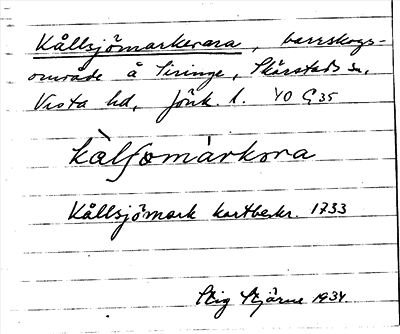 Kållsjömarkerara, barrskogs-
område å Siringe, Skärstads sn,
Vista hd, Jönk. l. YO G35
kàlʃomàrkɷra
Kållsjömark kartbeskr. 1733
Stig Stjärne 1934